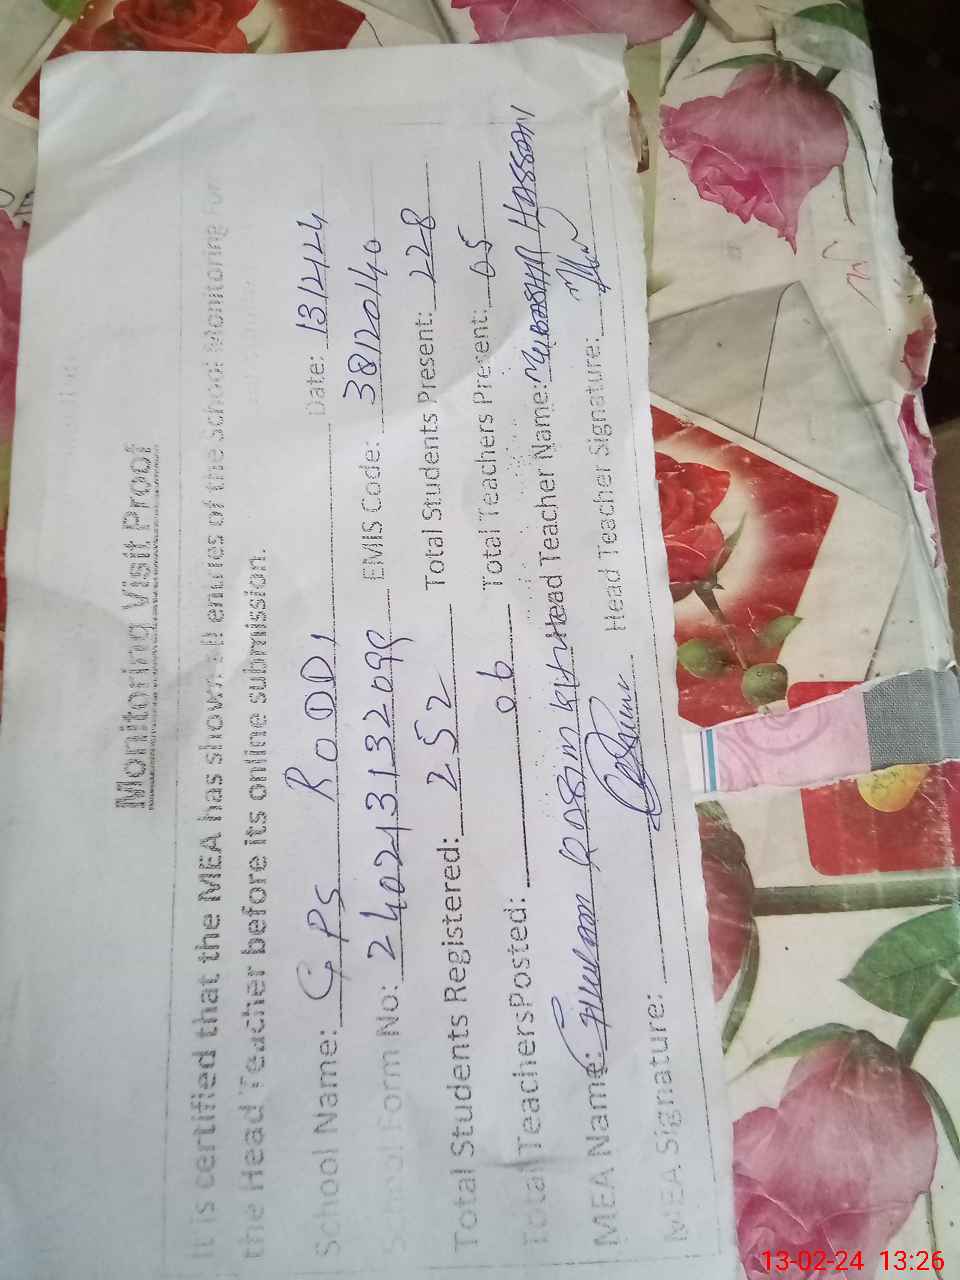 Monitoring Visit Proof
It is certified that the MEA has shown all entries of the School Monitoring For
the Head Teacher before its online submission.
School Name: GPS RODDI Date: 13/2/24
School Form No: 240213132099 EMIS Code: 38120140
Total Students Registered: 252 Total Students Present: 228
Total Teachers Posted: 06 Total Teachers Present: 05
MEA Name: Head Teacher Name: Mubashar Hassan
MEA Signature: Head Teacher Signature:
13-02-24 13:26